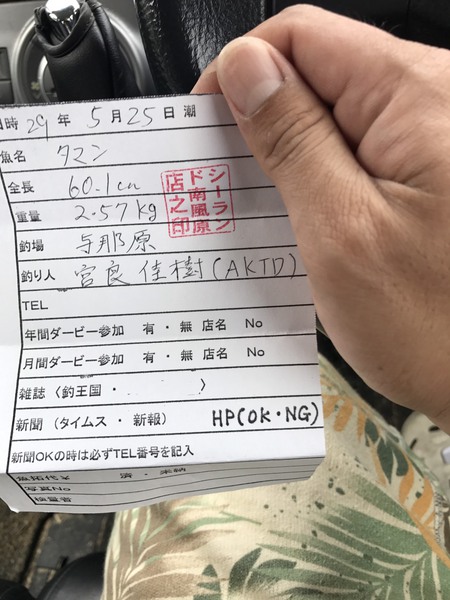 日時 29年 5月25日 潮
魚名 タマン
全長 60.1cm
重量 2.57kg
シーラン
ド南風原
店之印
釣場 与那原
釣り人 宮良佳樹(AKTD)
TEL
年間ダービー参加 有・無 店名 No
月間ダービー参加 有・無 店名 No
雑誌〈釣王国・ 〉
新聞(タイムス・新報) HP(OK・NG)
新聞OKの時は必ずTEL番号を記入